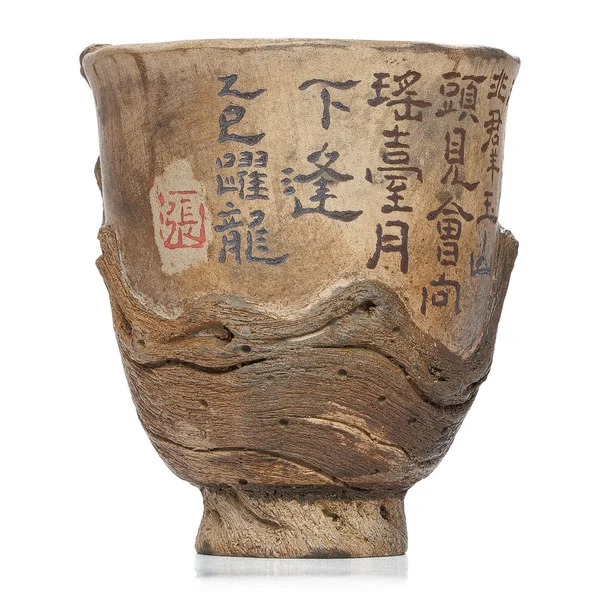 非羣玉山
頭見會向
瑤臺月
下逢
乙巳躍龍
張